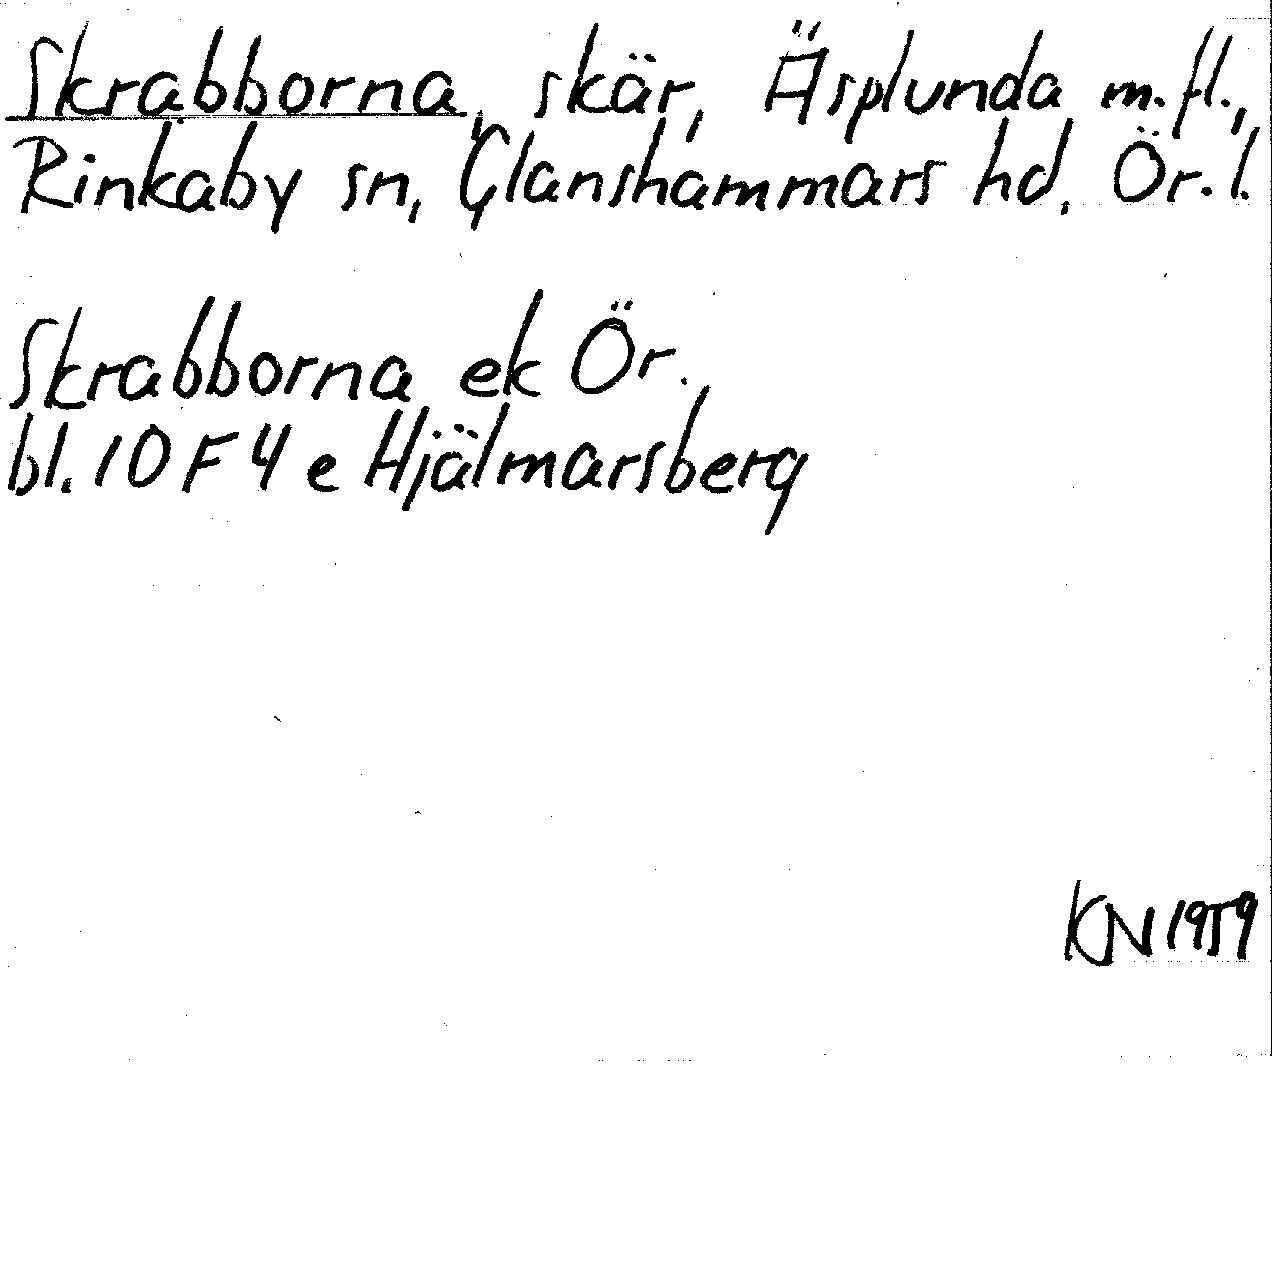 Skrabborna, skär, Äsplunda m.fl.,
Rinkaby sn, Glanshammars hd, Ör. l.
Skrabborna ek Ör.
bl. 10 F 4 e Hjälmarsberg
KN 1959